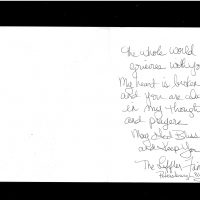 The whole world
grieves with you
My heart is broken
and you are
in my thoughts
and prayers
May God Bless
and keep you
The